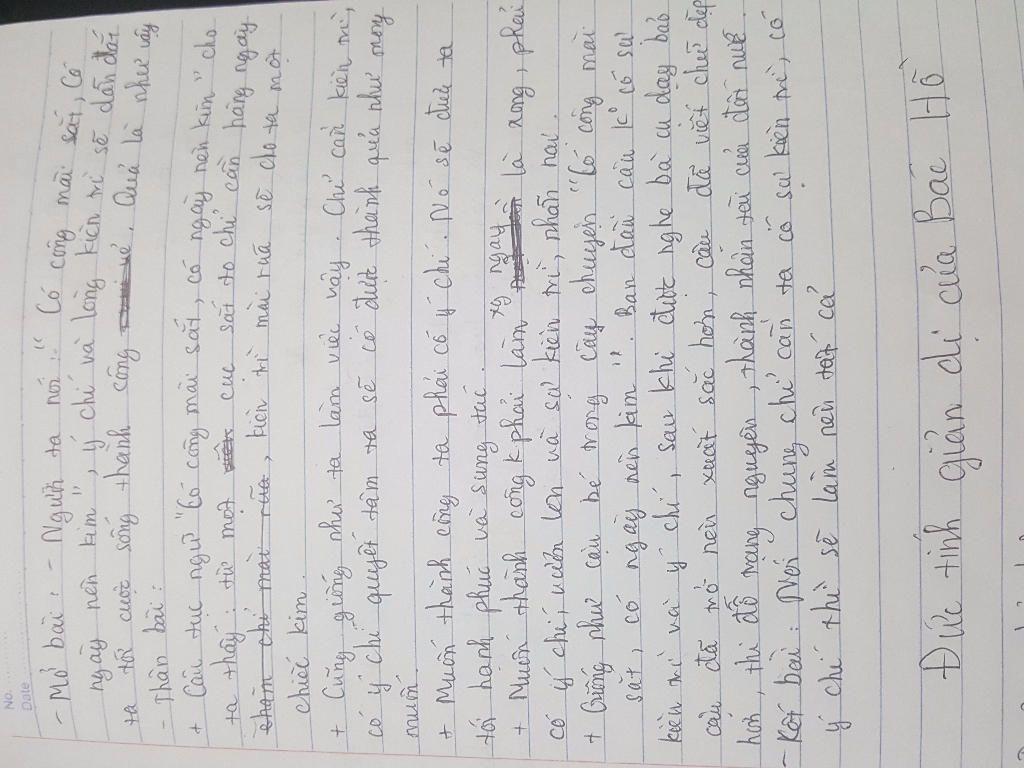 No. ............
Date ............
- Mở bài : - Người ta nói : " Có công mài sắt, có
ngày nên kim", ý chí và lòng kiên trì sẽ dẫn dắt
ta tới cuộc sống thành công. Quả là như vậy
- Thân bài :
+ Câu tục ngữ "Có công mài sắt, có ngày nên kim" cho
ta thấy : từ một cục sắt to chỉ cần hàng ngày
chăm chỉ mài rũa, kiên trì mài rũa sẽ cho ta một
chiếc kim.
+ Cũng giống như ta làm việc vậy. Chỉ cần kiên trì,
có ý chí quyết tâm ta sẽ có được thành quả như mong
muốn.
+ Muốn thành công ta phải có ý chí. Nó sẽ đưa ta
tới hạnh phúc và sung túc.
+ Muốn thành công k phải làm ngay là xong, phải
có ý chí, vươn lên và sự kiên trì, nhẫn nại.
+ Giống như cậu bé trong câu chuyện "Có công mài
sắt, có ngày nên kim". Ban đầu cậu k có sự
kiên trì và ý chí, sau khi được nghe bà cụ dạy bảo
cậu đã trở nên xuất sắc hơn, cậu đã viết chữ đẹp
hơn, thi đỗ trạng nguyên, thành nhân tài của đất nước.
- Kết bài : Nói chung chỉ cần ta có sự kiên trì, có
ý chí thì sẽ làm nên tất cả
Đức tính giản dị của Bác Hồ